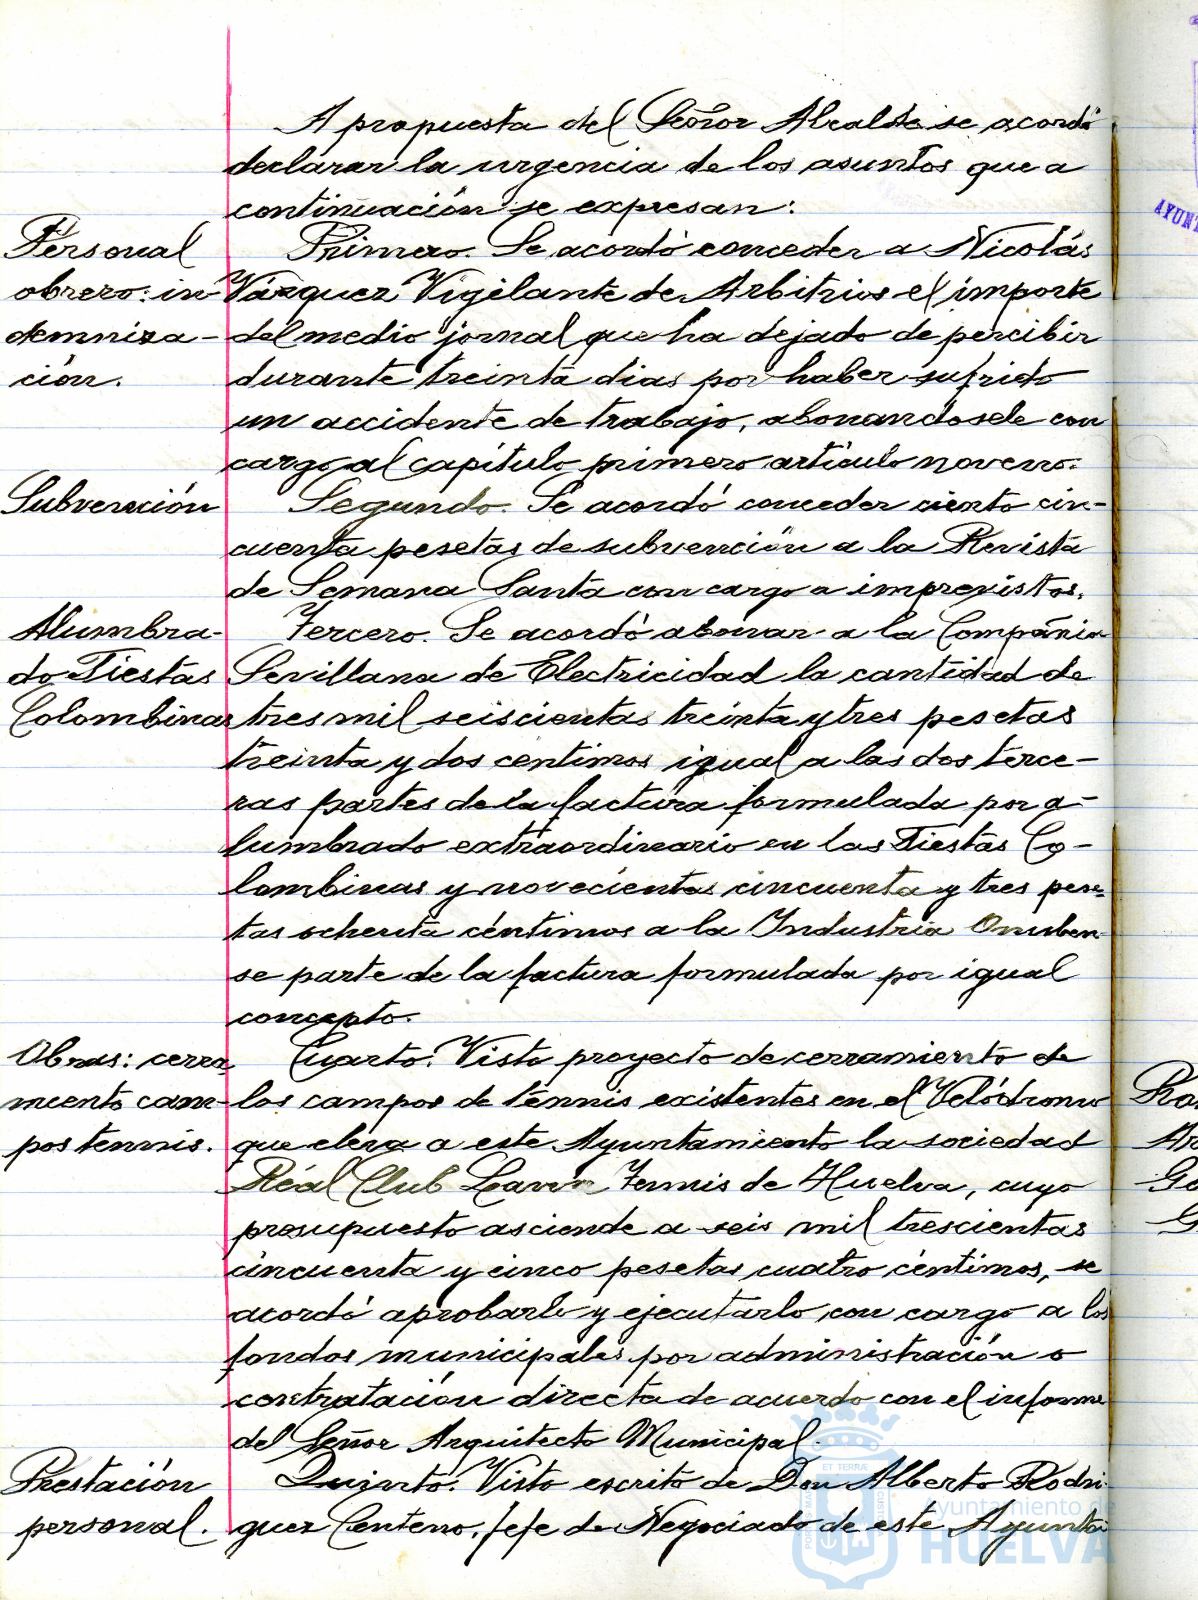 A propuesta del Señor Alcalde se acordó
declarar la urgencia de los asuntos que a
continuación se expresan:
Personal
obrero: in
demniza-
ción.
Primero. Se acordó conceder a Nicolás
Vázquez Vigilante de Arbitrios el importe
del medio jornal que ha dejado de percibir
durante treinta dias por haber sufrido
un accidente de trabajo, abonandosele con
cargo al capítulo primero artículo noveno.
Subvención
Segundo. Se acordó conceder ciento cin-
cuenta pesetas de subvención a la Revista
de Semana Santa con cargo a imprevistos.
Alumbra-
do Fiestas
Colombinas
Tercero. Se acordó abonar a la Compañia
Sevillana de Electricidad la cantidad de
tres mil seiscientas treinta y tres pesetas
treinta y dos centimos igual a las dos terce-
ras partes de la factura formulada por a-
lumbrado extraordinario en las Fiestas Co-
lombinas y novecientas cincuenta y tres pese-
tas ochenta céntimos a la Industria Onuben
se parte de la factura formulada por igual
concepto.
Obras: cerra
miento cam-
pos tennis.
Cuarto. Visto proyecto de cerramiento de
los campos de tennis existentes en el Velódromo
que eleva a este Ayuntamiento la sociedad
Real Club Lawn Tennis de Huelva, cuyo
presupuesto asciende a seis mil trescientas
cincuenta y cinco pesetas cuatro céntimos, se
acordó aprobarlo y ejecutarlo con cargo a los
fondos municipales por administración o
contratación directa de acuerdo con el informe
del Señor Arquitecto Municipal.
Prestación
personal.
Quinto. Visto escrito de Don Alberto Rodri-
guez Centeno, Jefe de Negociado de este Ayunta
Ayuntamiento de
HUELVA